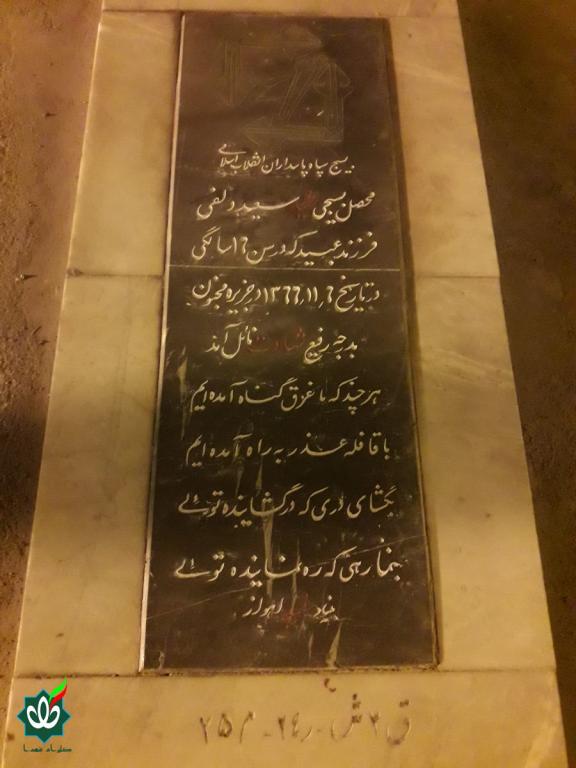 بسیج سپاه پاسداران انقلاب اسلامی
محصل بسیجی شهید سید دلفی
فرزند عبید که در سن ۱۶ سالگی
در تاریخ ۱۳۶۶٫۱۱٫۶ در جزیره مجنون
بدرجه رفیع شهادت نائل آمد
هر چند که ما غرق گناه آمده ایم
با قافله عذر به راه آمده ایم
بگشای دری که در گشاینده توئی
بنما رهی که ره نماینده توئی
بنیاد شهید اهواز
ق ۲ ش - ر ۲۴ - م ۲۵
گلزار شهدا